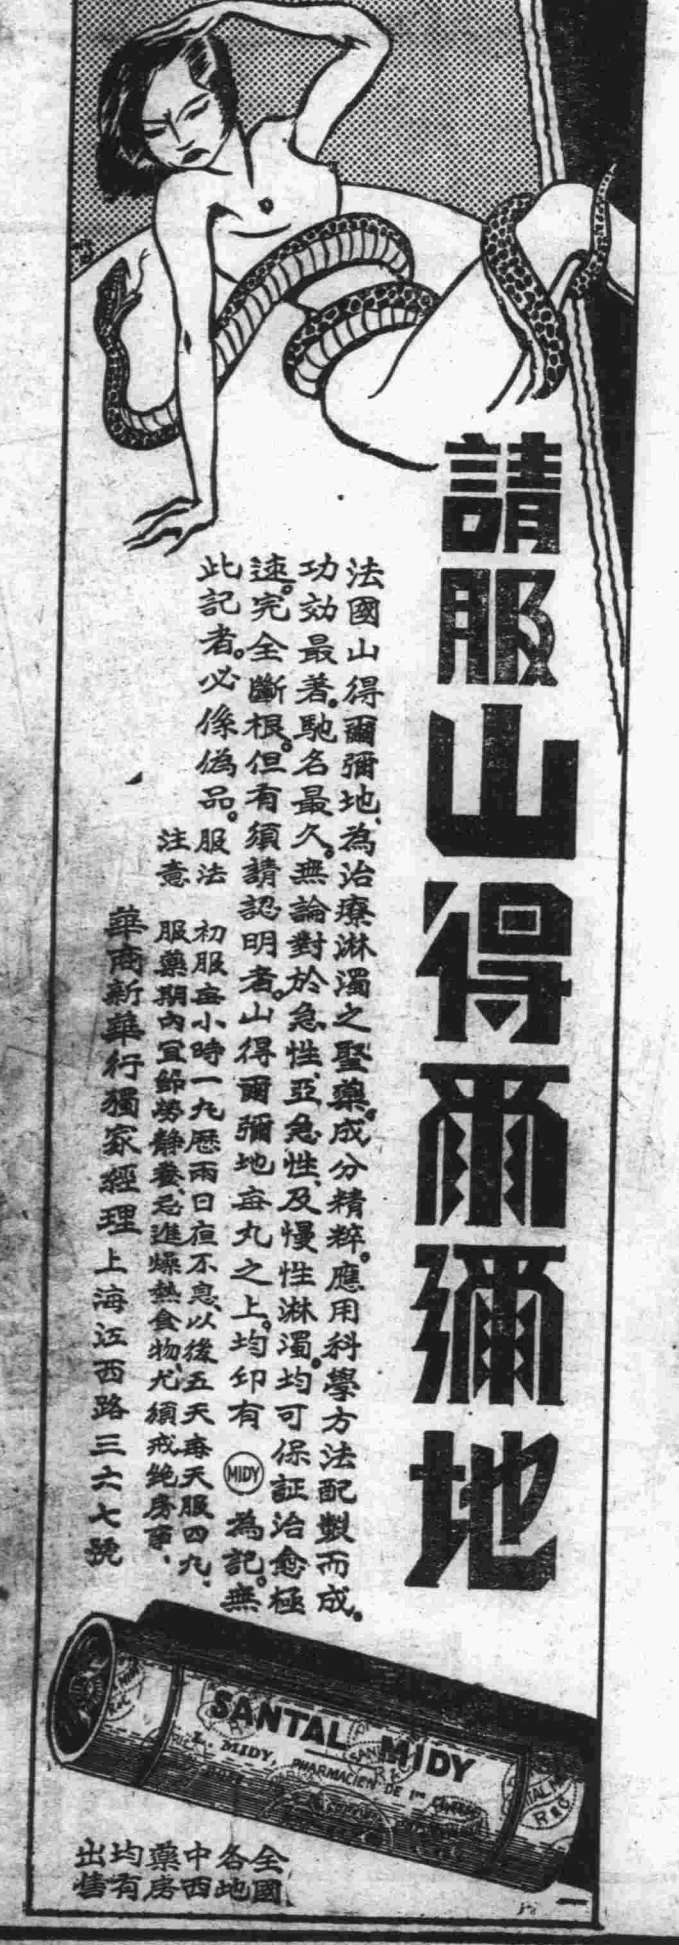 請服山得爾彌地
法國山得爾彌地、為治療淋濁之聖藥。成分精粹。應用科學方法配製而成。
功效最著。馳名最久。無論對於急性、亞急性、及慢性淋濁。均可保証治愈極
速。完全斷根。但有須請認明者。山得爾彌地每丸之上。均印有 MIDY 為記。無
此記者。必係偽品。
服法 初服每小時一丸歷兩日夜不息、以後五天每天服四丸、
注意 服藥期內宜節勞靜養、忌進燥熱食物、尤須戒絶房事、
華商新華行獨家經理上海江西路三六七號
SANTAL MIDY
L. MIDY, PHARMACIEN DE 1re CLASSE
全國
各地
中西
藥房
均有
出售